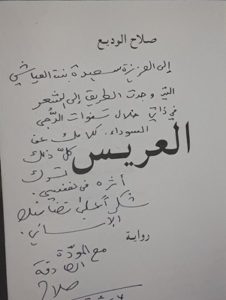 صلاح الوديع
إلى العزيزة سعيدة بنت العياشي
التي وجدت الطريق إلى الشعر
في ذاتها خلال سنوات الدُّجى
السوداء. كلامك عن
كلّ ذلك
العريس
ترك
أثره في نفسي.
شكرا على تضامنك
الإنساني.
رواية
مع المودّة
الصادقة
صلاح